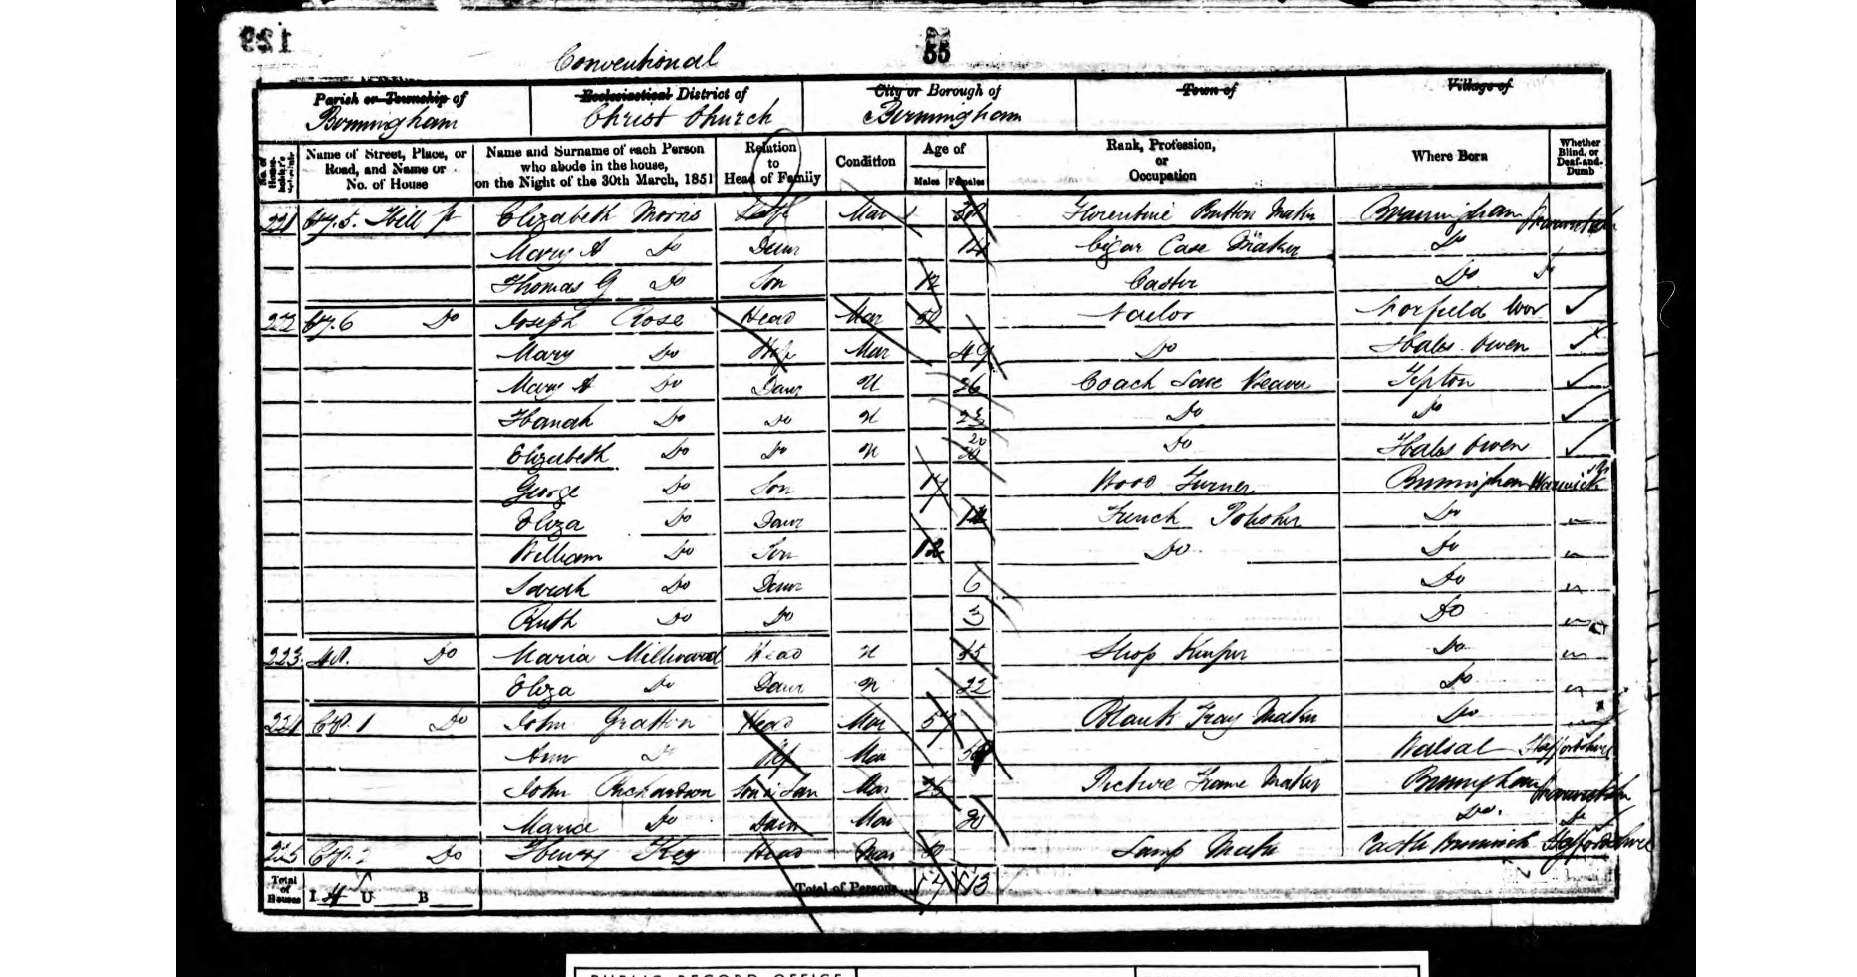 129
Conventional
55
Parish or Township of
Birmingham
Ecclesiastical District of
Christ Church
City or Borough of
Birmingham
Town of
Village of
No. of House-holder's Schedule
Name of Street, Place, or Road, and Name or No. of House
Name and Surname of each Person who abode in the house, on the Night of the 30th March, 1851
Relation to Head of Family
Condition
Age of
Males Females
Rank, Profession, or Occupation
Where Born
Whether Blind, or Deaf-and-Dumb
221 5. Hill Elizabeth Morris Mar Florentine Button Maker Birmingham
Mary A Do Daur 14 Cigar Case Maker Do
Thomas G Do Son 12 Caster Do
222 6 Do Joseph Rose Head Mar Nailor Norfield Wor
Mary Do Wife Mar 49 Do Hales Owen
Mary A Do Daur U 26 Coach Lace Weaver Tipton
Hanah Do Do U 23 Do Do
Elizabeth Do Do U 20 Do Hales Owen
George Do Son 17 Wood Turner Birmingham Warwick
Eliza Do Daur French Polisher Do
William Do Son 12 Do Do
Sarah Do Daur 6 Do
Ruth Do Do 3 Do
223 Do Maria Millward Head U Shop Keeper Do
Eliza Do Daur U 22 Do
224 1 Do John Gratton Head Mar 57 Blank Tray Maker Do
Ann Do Wife Mar Walsal Staffordshire
John Richardson Son in Law Mar Picture Frame Maker Birmingham
Maria Do Daur Mar 20 Do.
225 Do Henry Key Head Mar Lamp Maker Castle Bromwich Staffordshire
Total of Houses I 4 U B Total of Persons 13
PUBLIC RECORD OFFICE